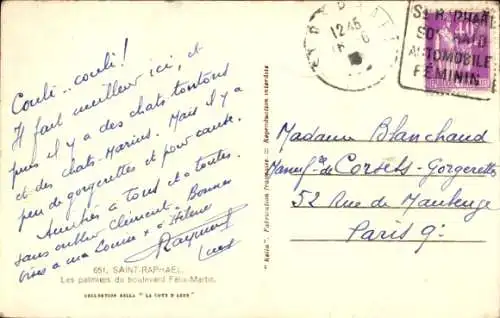 Couli - couli !
Il fait meilleur ici, et
puis il y a des chats toutous
et des chats-Marius. Mais il y a
peu de gorgerettes et pour cause.
Amitiés à tous et à toutes.
sans oublier Clément. Bonnes
bises à ma Louise et à Hélène
Raymond
651. SAINT-RAPHAEL.
Les palmiers du boulevard Félix-Martin.
COLLECTION RELLA "LA COTE D'AZUR"
"Rella". Fabrication française - Reproduction interdite
12 45
6
ST RAPHAEL
SON RAID
AUTOMOBILE
FÉMININ
40
Madame Blanchaud
Manuf.re de Corsets-Gorgerettes
52 Rue de Maubeuge
Paris 9e.